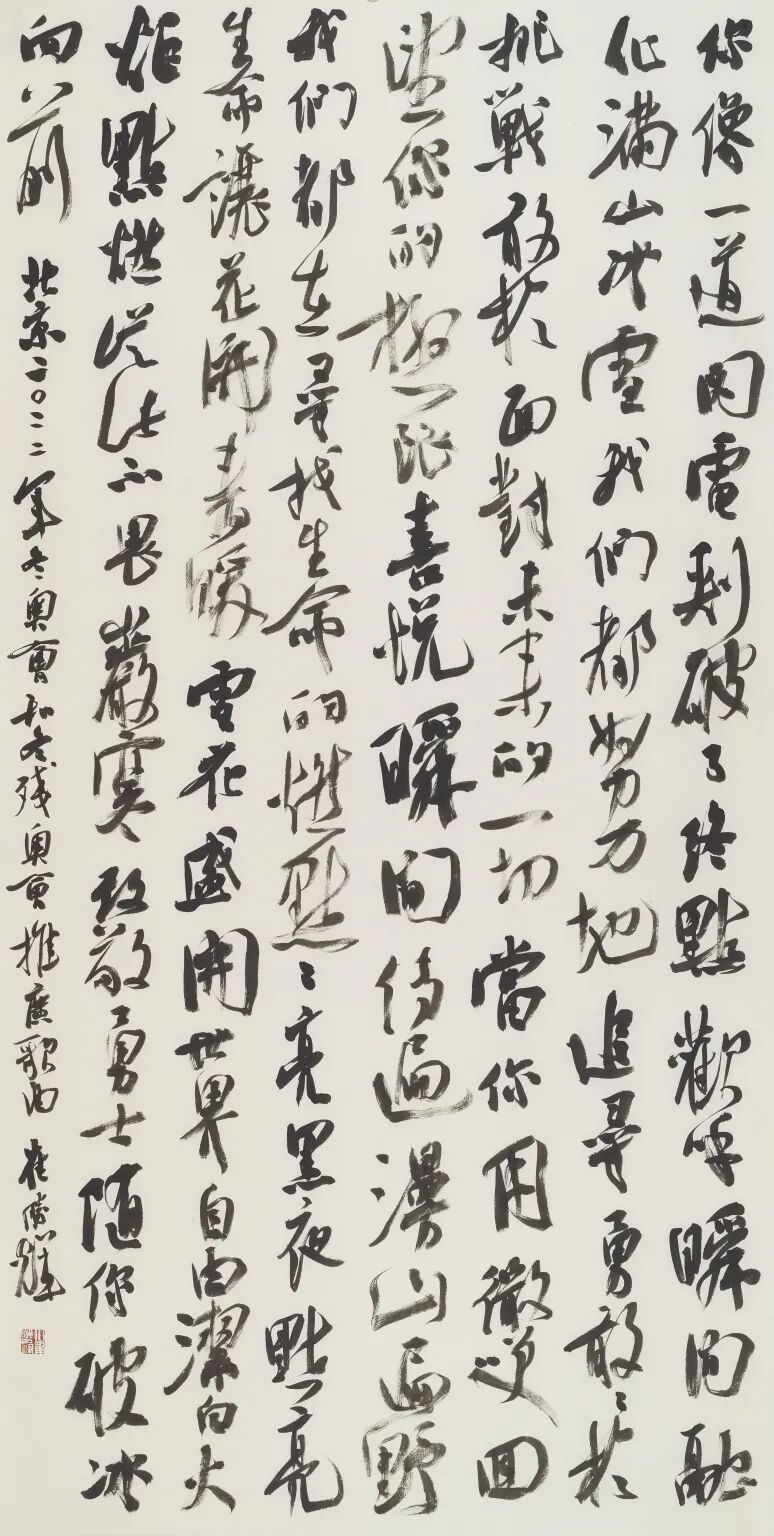 你像一道閃電刺破了終點歡呼瞬間融
化满山冰雪我們都努力地追尋勇敢々於
挑戰敢於面對未來的一切當你用微笑回
望你的極限喜悅瞬間傳遍漫山遍野
我們都在尋找生命的燃點々亮黑夜點亮
生命讓花開春暖雪花盛開世界自由潔白火
炬點燃從此不畏嚴寒致敬勇士隨你破冰
向前 北京二〇二二年冬奥會和冬残奥會推廣歌曲 崔